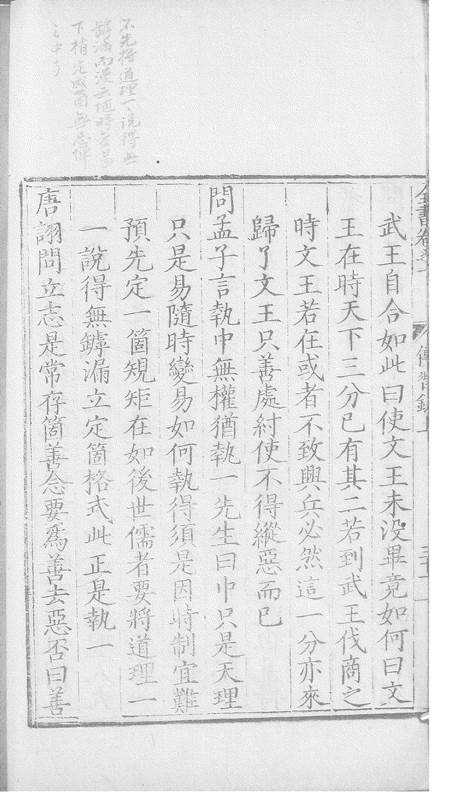 全書卷之一
傳習錄上
武王自合如此曰使文王未没畢竟如何曰文
王在時天下三分已有其二若到武王伐商之
時文王若在或者不致興兵必然這一分亦來
歸了文王只善處紂使不得縱惡而已
問孟子言執中無權猶執一先生曰中只是天理
只是易隨時變易如何執得須是因時制宜難
預先定一箇規矩在如後世儒者要將道理一
一說得無罅漏立定箇格式此正是執一
唐詡問立志是常存箇善念要爲善去惡否曰善
不先將道理一說得無
罅漏而漫云隨時
下梢完成箇無忌憚
之中